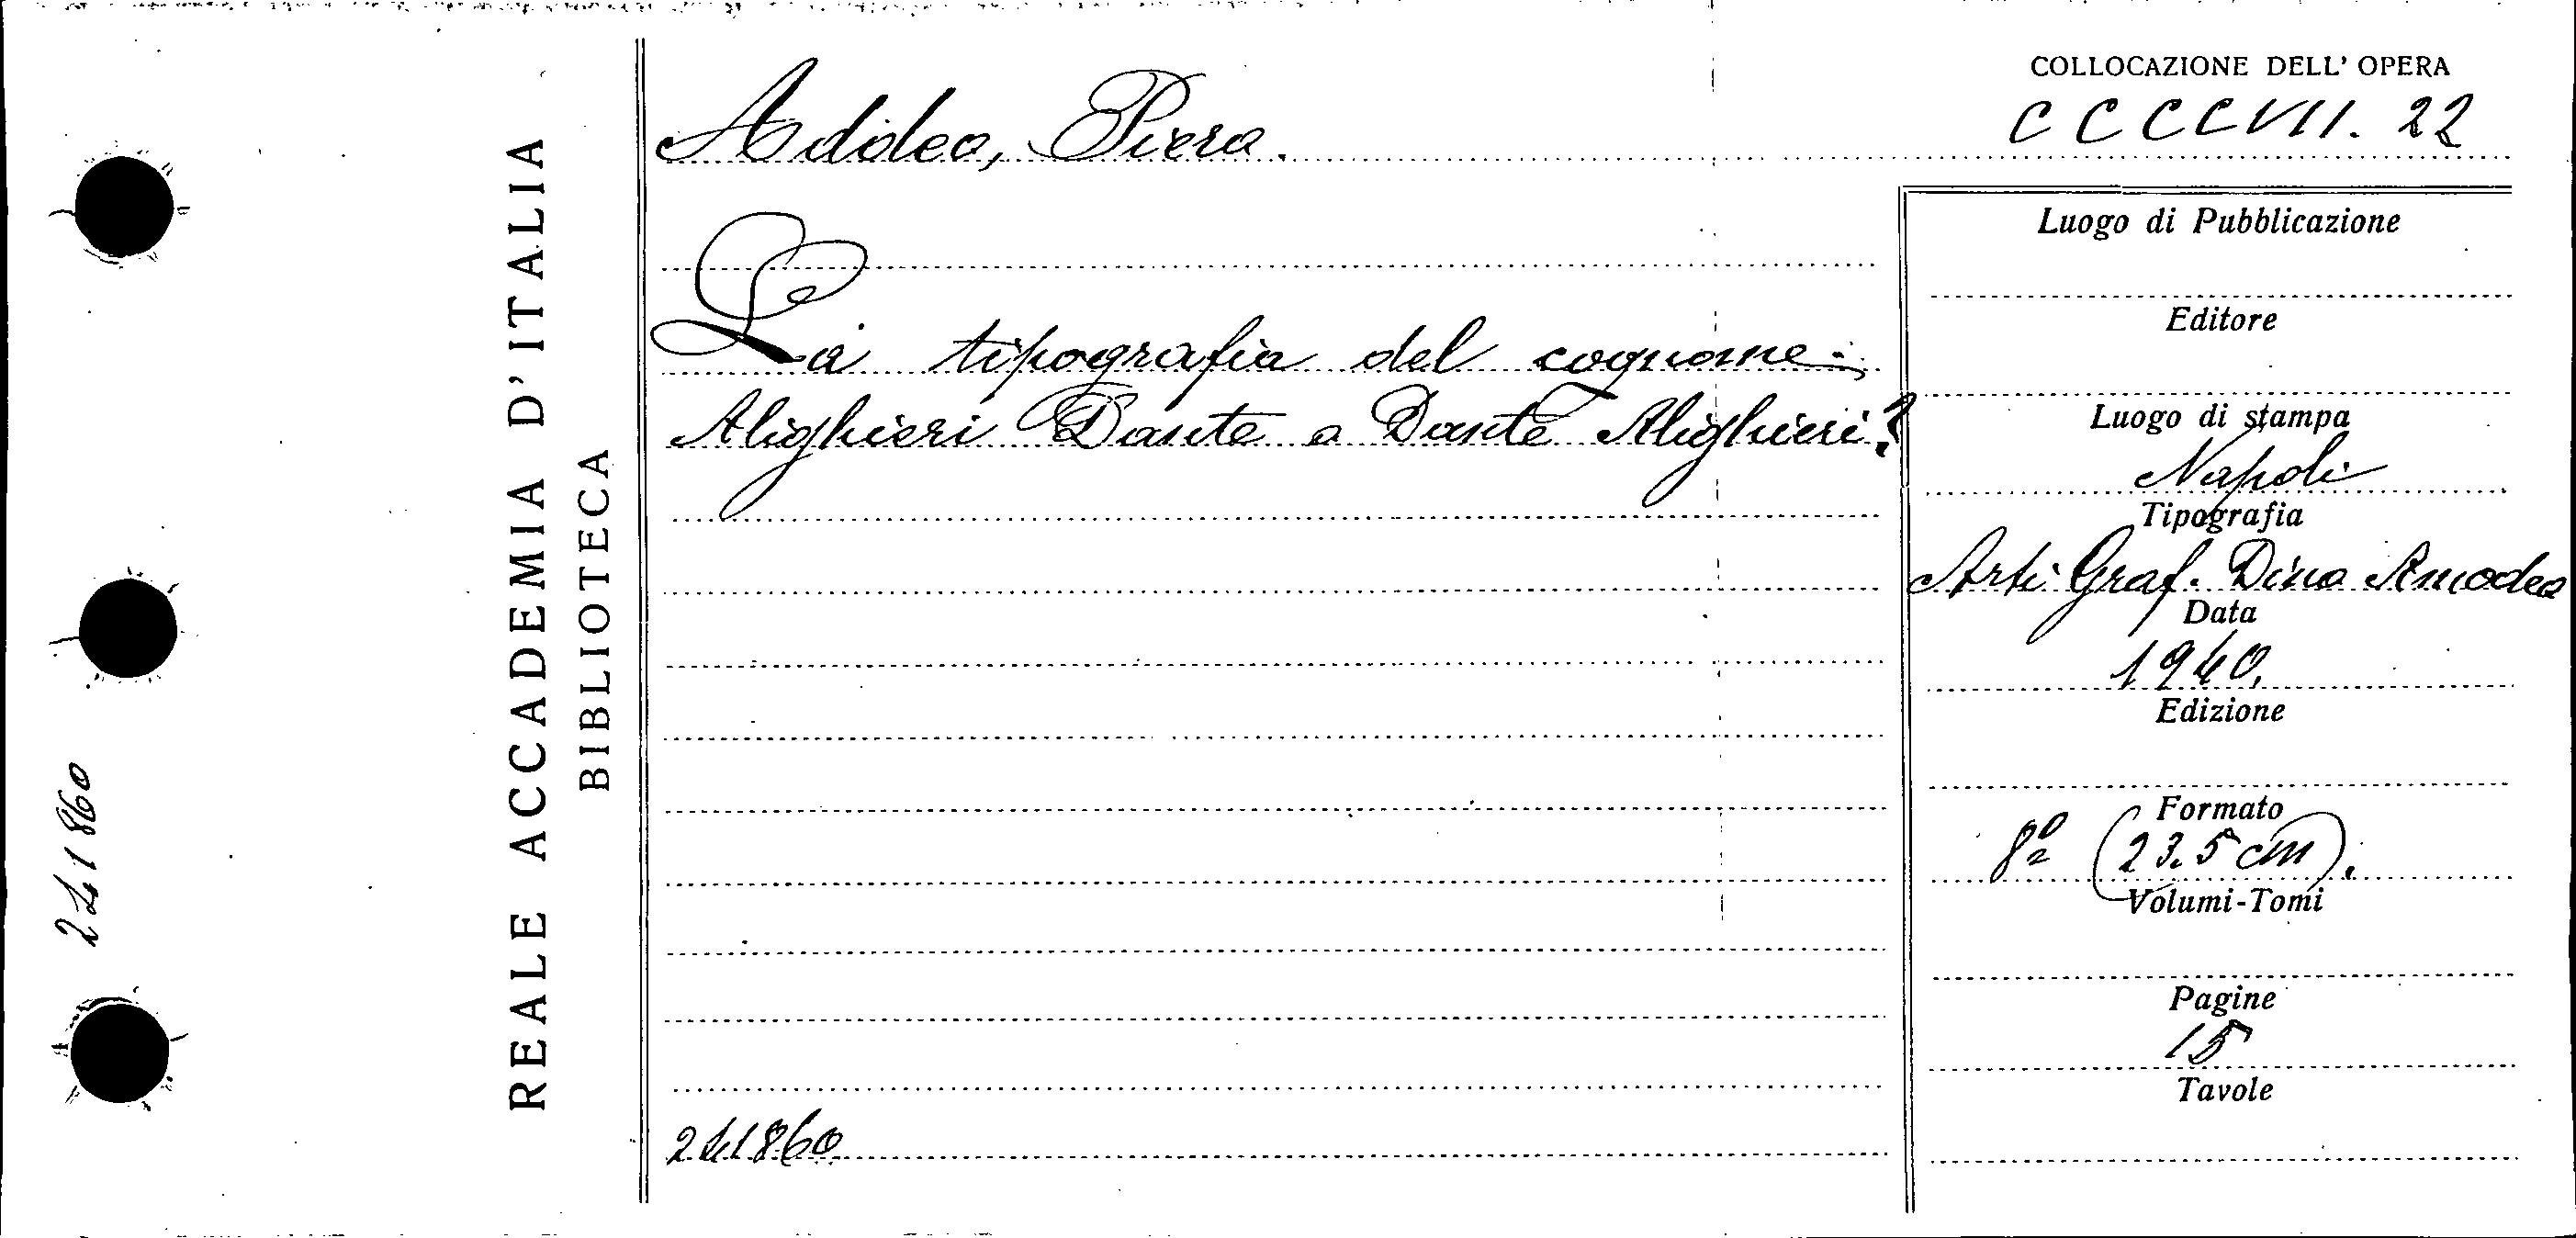 COLLOCAZIONE DELL' OPERA
CCCCVII. 22
Addeo, Piera.
La tipografia del cognome:
Alighieri Dante o Dante Alighieri?
241860
Luogo di Pubblicazione
Editore
Luogo di stampa
Napoli
Tipografia
Arti Graf. Dino Amodeo
Data
1940.
Edizione
Formato
8º (23.5 cm).
Volumi-Tomi
Pagine
15
Tavole
REALE ACCADEMIA D'ITALIA
BIBLIOTECA
241860